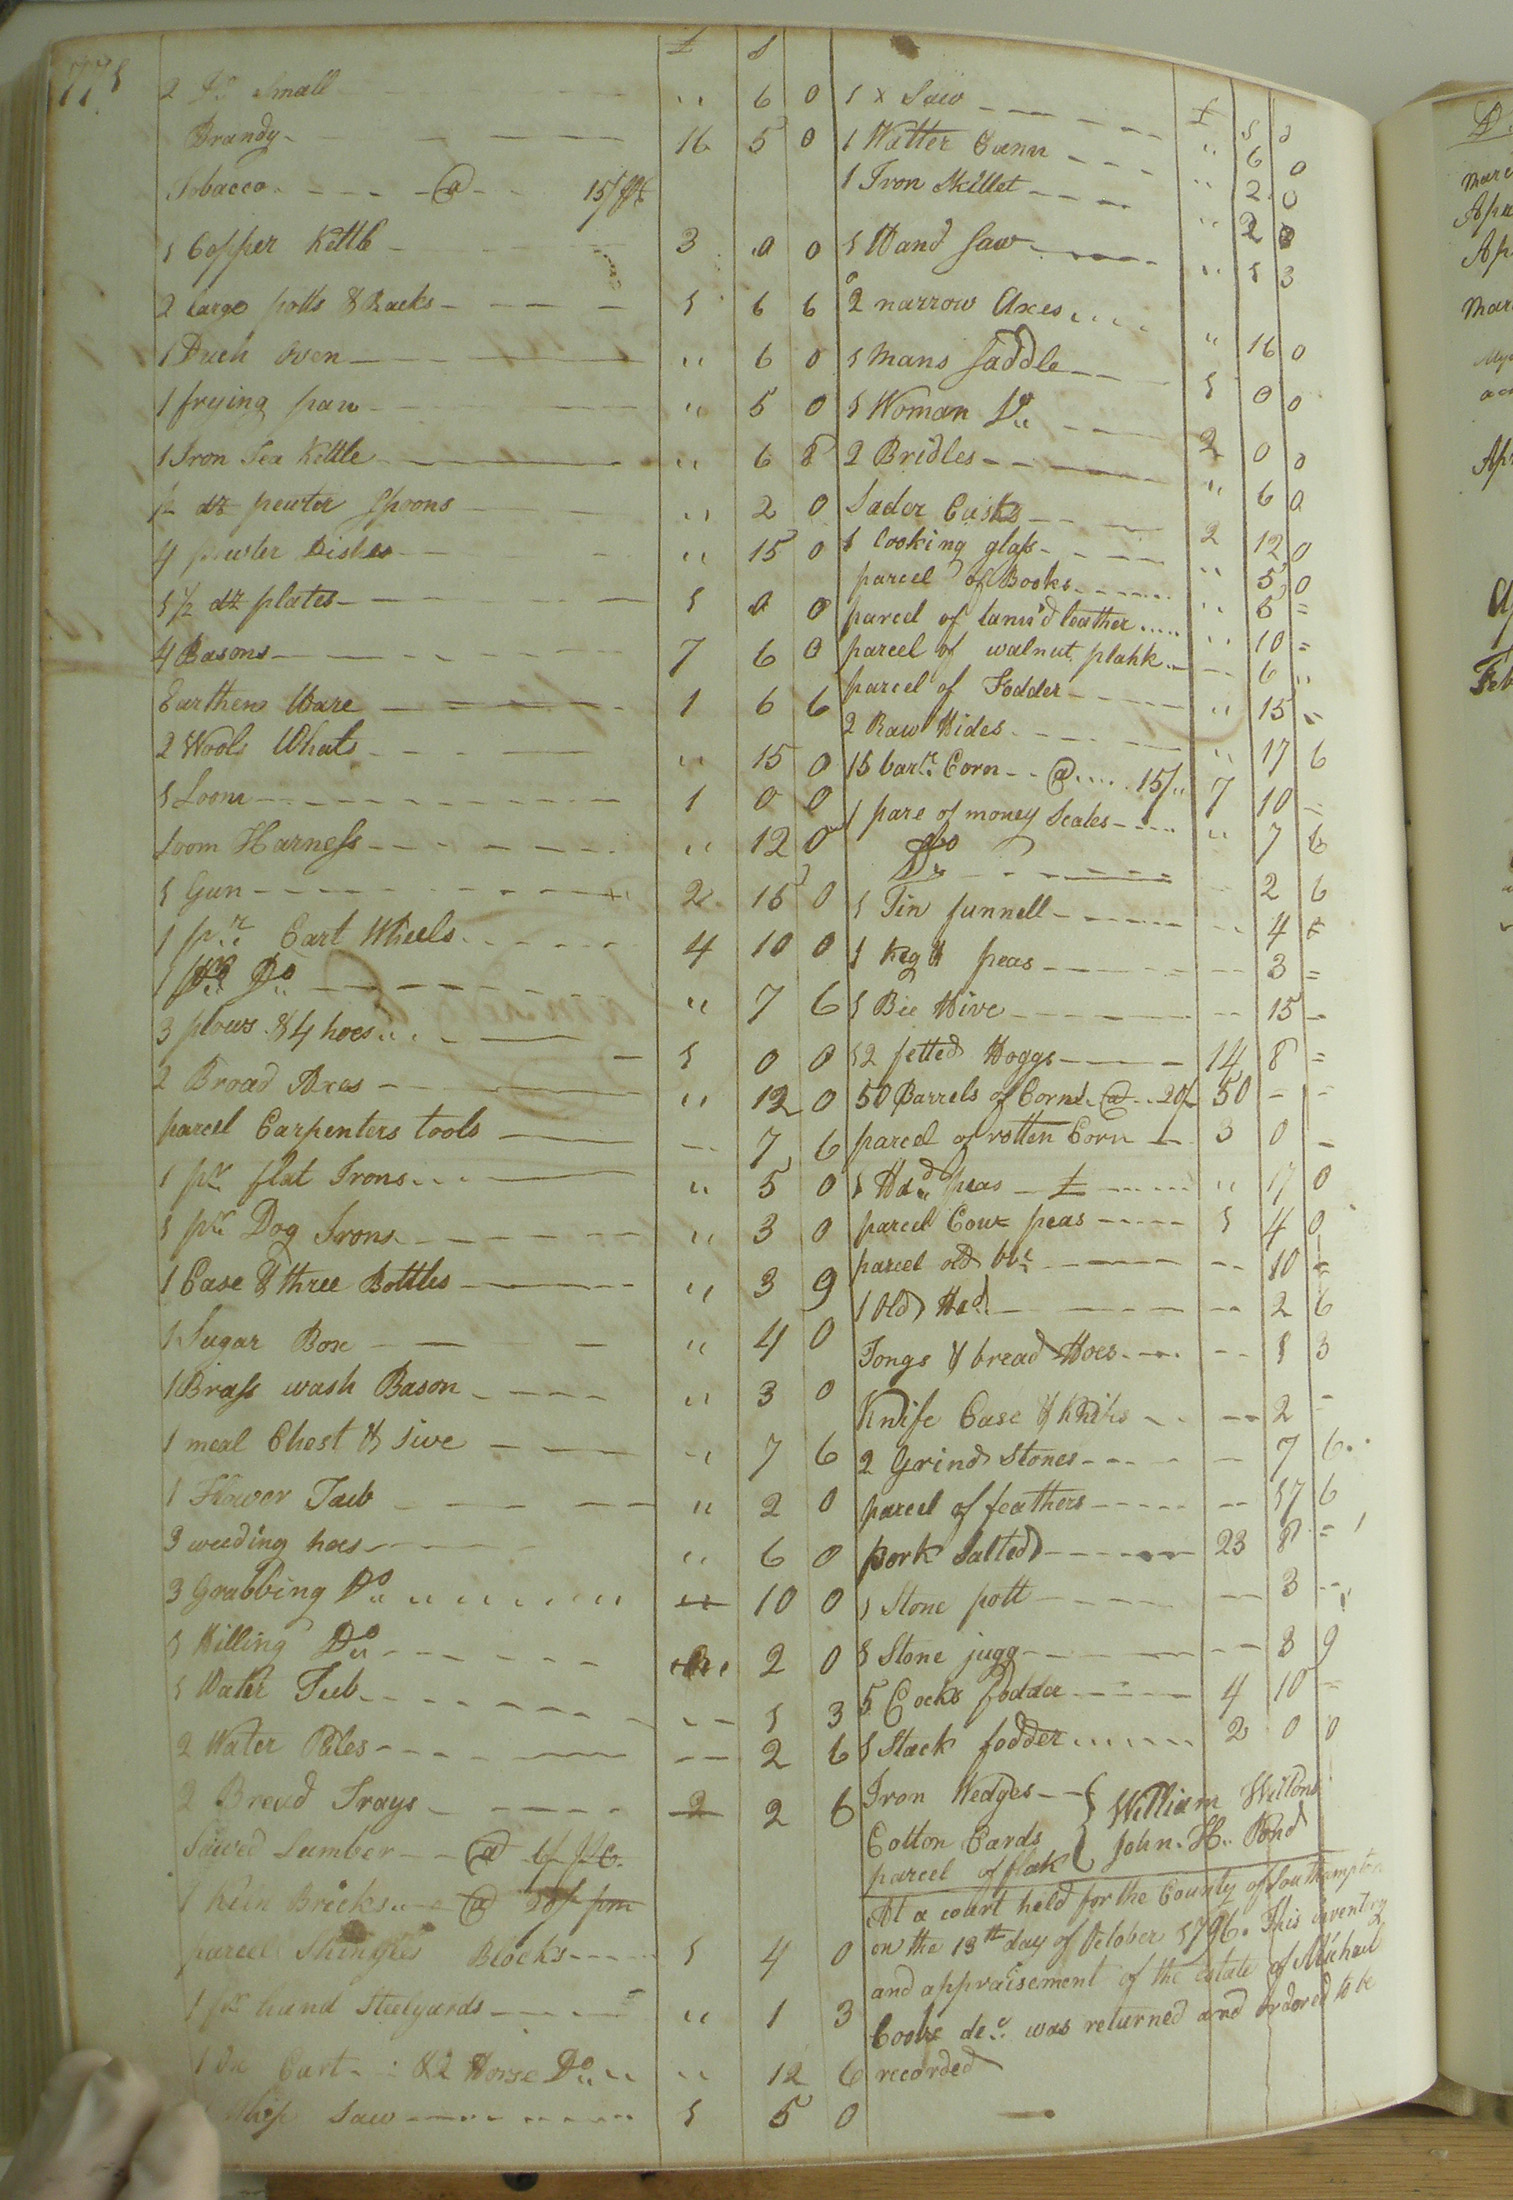 £ s
2 Do Small " 6 0
Brandy 16 5 0
Tobacco @ 15/
1 Copper Kettle 3 0 0
2 large potts & Racks 1 6 6
1 Duch Oven " 6 0
1 frying pan " 5 0
1 Iron Tea Kettle " 6 8
1/2 dz pewter Spoons " 2 0
4 pewter Dishes " 15 0
1 1/2 dz plates 1 0 0
4 Basons 7 6 0
Earthen Ware 1 6 6
2 Wools Whels " 15 0
1 Loom 1 0 0
Loom Harness " 12 0
1 Gun 2 15 0
1 pr Cart Wheels 4 10 0
1 Do " 7 6
3 plows & 4 hoes 1 0 0
2 Broad Axes " 12 0
parcel Carpenters tools 7 6
1 pr flat Irons " 5 0
1 pr Dog Irons " 3 0
1 Case & three Bottles " 3 9
1 Sugar Box " 4 0
1 Brass wash Bason " 3 0
1 meal Chest & Sive " 7 6
1 Flower Tub " 2 0
3 weeding hoes " 6 0
3 Grabbing Do " 10 0
1 Hilling Do 2 0
1 Water Tub 1 3
2 Water Pales 2 6
2 Bread Trays 2 6
Sawed Lumber @ 6/
1 Kiln Bricks @ 20/ pm
parcel Shingles Blocks 1 4 0
1 pr hand Steelyards " 1 3
1 Ox Cart & 2 Horse Do " 12 6
Whip Saw 1 5 0
£ s d
1 x Saw " 6 0
1 Watter Cann " 2 0
1 Iron Skillet " 2 0
1 Hand Saw " 1 3
2 narrow Axes " 16 0
1 Mans Saddle 1 0 0
1 Woman Do 2 0 0
2 Bridles " 6 0
Sador Casks 2 12 0
1 Looking glass " 5 0
parcel of Books " 5 =
parcel of tann'd leather " 10 =
parcel of walnut plank 6 "
parcel of Fodder " 15 =
2 Raw Hides " 17 6
15 barls Corn @ 15/ 7 10 -
1 pare of money Scales " 7 6
Do 2 6
1 Tin funnell 4
1 Keg & peas 3 =
1 Bee Hive 15 -
12 fetted Hoggs 14 8 =
50 Barrels of Corn @ 20/ 50 - -
parcel of rotten Corn 3 0 -
1 Hdd peas " 17 0
parcel Cow peas 1 4 0
parcel old 10
1 Old Hdd 2 6
Tongs & bread Hoes 1 3
Knife Case & Knifes 2 -
2 Grind Stones 7 6
parcel of feathers 17 6
pork Salted 23 8 =
1 Stone pott 3
1 Stone jugg 3 9
5 Cocks fodder 4 10 =
1 Stack fodder 2 0 0
Iron Wedges
Cotton Cards
parcel of flax
William
John. H. Pond
At a court held for the County of Southampton
on the 13th day of October 1796. This inventory
and appraisement of the estate of Michael
Cooke decd was returned and ordered to be
recorded